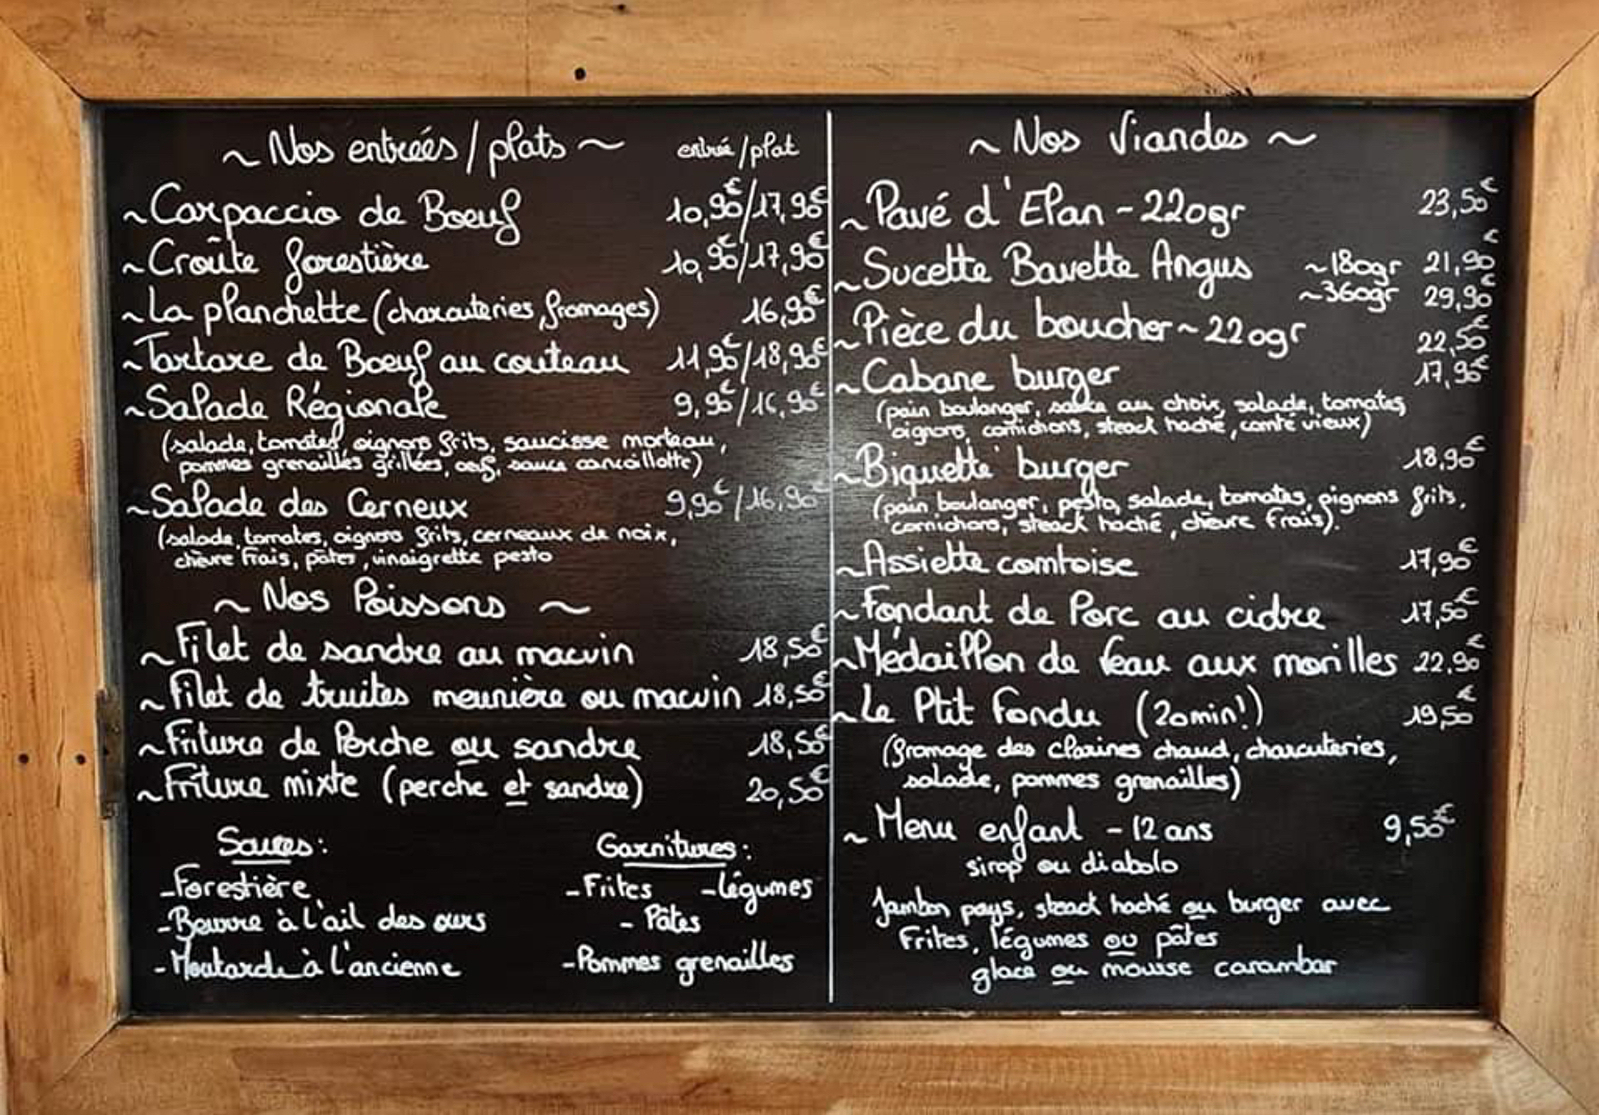 ~ Nos entrées / plats ~ entrée/plat
~ Carpaccio de Boeuf 10,90€/17,90€
~ Croûte forestière 10,90€/17,90€
~ La planchette (charcuteries, fromages) 16,90€
~ Tartare de Boeuf au couteau 11,90€/18,90€
~ Salade Régionale 9,90€/16,90€
(salade, tomates, oignons frits, saucisse morteau,
pommes grenailles grillées, oeuf, sauce cancoillotte)
~ Salade des Cerneux 9,90€/16,90€
(salade, tomates, oignons frits, cerneaux de noix,
chèvre frais, pâtes, vinaigrette pesto
~ Nos Poissons ~
~ Filet de sandre au macvin 18,50€
~ Filet de truites meunière ou macvin 18,50€
~ Friture de Perche ou sandre 18,50€
~ Friture mixte (perche et sandre) 20,50€
Sauces :
- Forestière
- Beurre à l'ail des ours
- Moutarde à l'ancienne
Garnitures :
- Frites - légumes
- Pâtes
- Pommes grenailles
~ Nos Viandes ~
~ Pavé d'Elan - 220gr 23,50€
~ Sucette Bavette Angus ~180gr 21,90€
~360gr 29,90€
~ Pièce du boucher ~ 220gr 22,50€
~ Cabane burger 17,90€
(pain boulanger, sauce au choix, salade, tomates,
oignons, cornichons, steack haché, comté vieux)
~ Biquette burger 18,90€
(pain boulanger, pesto, salade, tomates, oignons frits,
cornichons, steack haché, chèvre frais).
~ Assiette comtoise 17,90€
~ Fondant de Porc au cidre 17,50€
~ Médaillon de Veau aux morilles 22,90€
~ Le Ptit Fondu (20min!) 19,50€
(fromage des clarines chaud, charcuteries,
salade, pommes grenailles)
~ Menu enfant - 12 ans 9,50€
sirop ou diabolo
Jambon pays, steack haché ou burger avec
Frites, légumes ou pâtes
glace ou mousse carambar